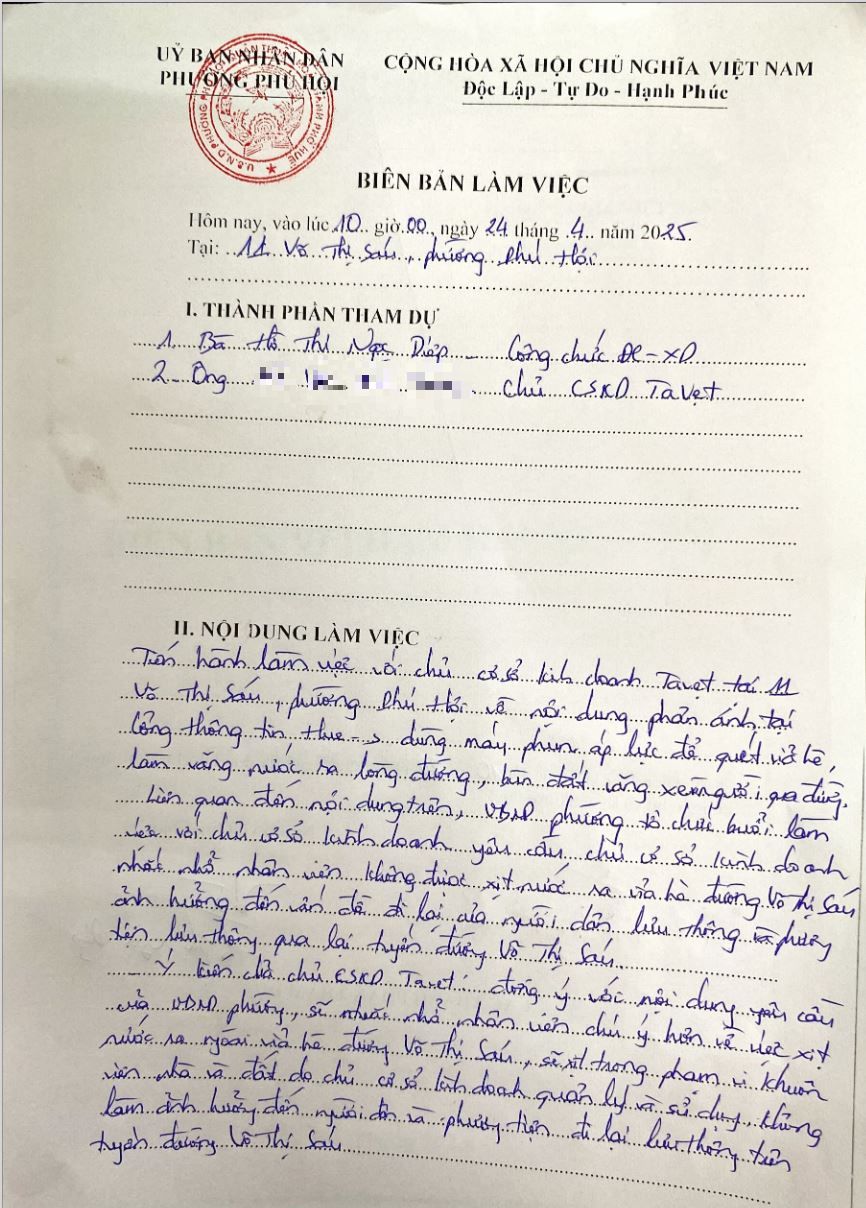 UỶ BAN NHÂN DÂN
PHƯỜNG PHÚ HỘI
CỘNG HÒA XÃ HỘI CHỦ NGHĨA VIỆT NAM
Độc Lập - Tự Do - Hạnh Phúc
BIÊN BẢN LÀM VIỆC
Hôm nay, vào lúc 10 giờ 00, ngày 24 tháng 4 năm 2025.
Tại: 11 Võ Thị Sáu, phường Phú Hội
I. THÀNH PHẦN THAM DỰ
1. Bà Hồ Thị Ngọc Diệp - Công chức ĐC-XD
2- Ông chủ CSKD Tavẹt
II. NỘI DUNG LÀM VIỆC
Tiến hành làm việc với chủ cơ sở kinh doanh Tavẹt tại 11
Võ Thị Sáu, phường Phú Hội về nội dung phản ánh tại
Cổng thông tin Hue-s dùng máy phun áp lực để quét vỉa hè,
làm văng nước ra lòng đường, bùn đất văng xe người qua đường.
Liên quan đến nội dung trên, UBND phường tổ chức buổi làm
việc với chủ cơ sở kinh doanh yêu cầu chủ cơ sở kinh doanh
nhắc nhở nhân viên không được xịt nước ra vỉa hè đường Võ Thị Sáu
ảnh hưởng đến vấn đề đi lại của người dân lưu thông và phương
tiện lưu thông qua lại tuyến đường Võ Thị Sáu
- Ý kiến của chủ CSKD Tavẹt: đồng ý với nội dung yêu cầu
của UBND phường, sẽ nhắc nhở nhân viên chú ý hơn về việc xịt
nước ra ngoài vỉa hè đường Võ Thị Sáu, sẽ xịt trong phạm vi khuôn
viên nhà và đất do chủ cơ sở kinh doanh quản lý và sử dụng, không
làm ảnh hưởng đến người dân và phương tiện đi lại lưu thông trên
tuyến đường Võ Thị Sáu